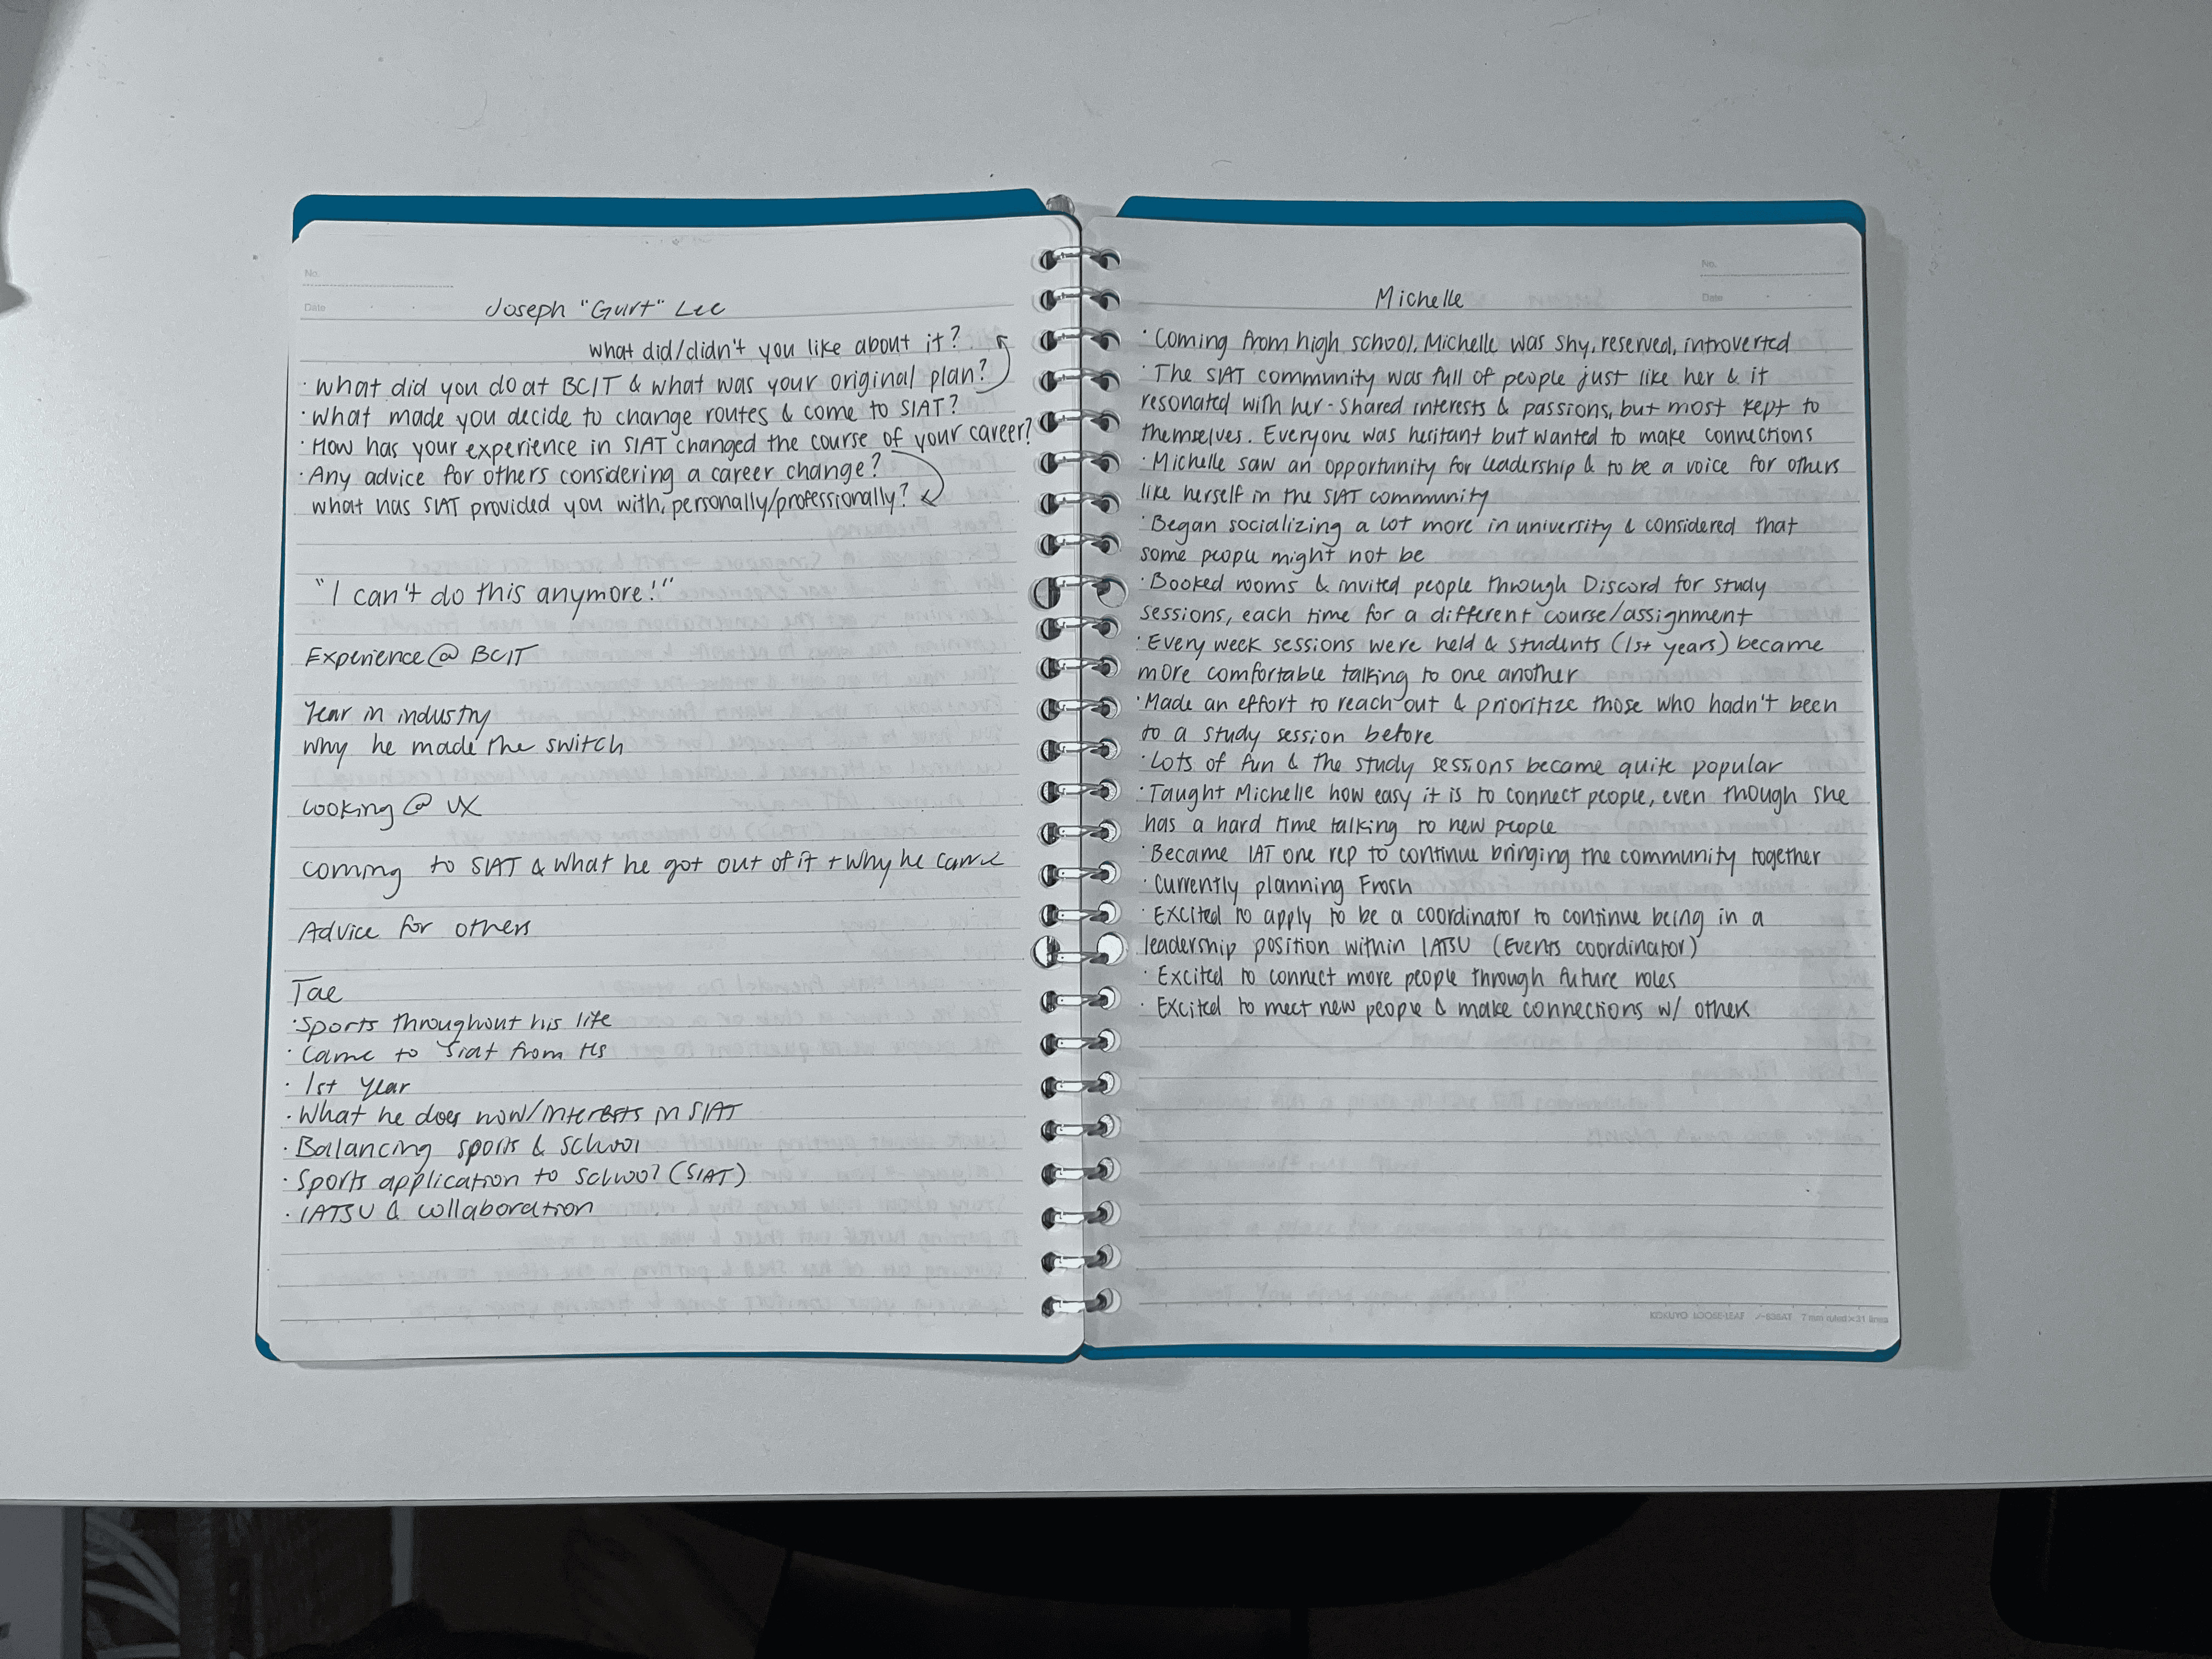 No.
Date
Joseph "Gurt" Lee
what did/didn't you like about it?
· what did you do at BCIT & what was your original plan?
· What made you decide to change routes & come to SIAT?
· How has your experience in SIAT changed the course of your career?
· Any advice for others considering a career change?
what has SIAT provided you with, personally/professionally?
"I can't do this anymore!"
Experience @ BCIT
Year in industry
why he made the switch
Looking @ UX
Coming to SIAT & what he got out of it + why he came
Advice for others
Tae
· Sports throughout his life
· Came to Siat from Hs
· 1st Year
· What he does now/interests in SIAT
· Balancing sports & school
· Sports application to school (SIAT)
· IATSU & collaboration
No.
Date
Michelle
· Coming from high school, Michelle was shy, reserved, introverted
· The SIAT community was full of people just like her & it
resonated with her - shared interests & passions, but most kept to
themselves. Everyone was hesitant but wanted to make connections
· Michelle saw an opportunity for leadership & to be a voice for others
like herself in the SIAT community
· Began socializing a lot more in university & considered that
some people might not be
· Booked rooms & invited people through Discord for study
sessions, each time for a different course/assignment
· Every week sessions were held & students (1st years) became
more comfortable talking to one another
· Made an effort to reach out & prioritize those who hadn't been
to a study session before
· Lots of fun & the study sessions became quite popular
· Taught Michelle how easy it is to connect people, even though she
has a hard time talking to new people
· Became IAT one rep to continue bringing the community together
· Currently planning Frosh
· Excited to apply to be a coordinator to continue being in a
leadership position within IATSU (Events coordinator)
· Excited to connect more people through future roles
· Excited to meet new people & make connections w/ others
KOKUYO LOOSE-LEAF ノ-836AT 7 mm ruled × 31 lines